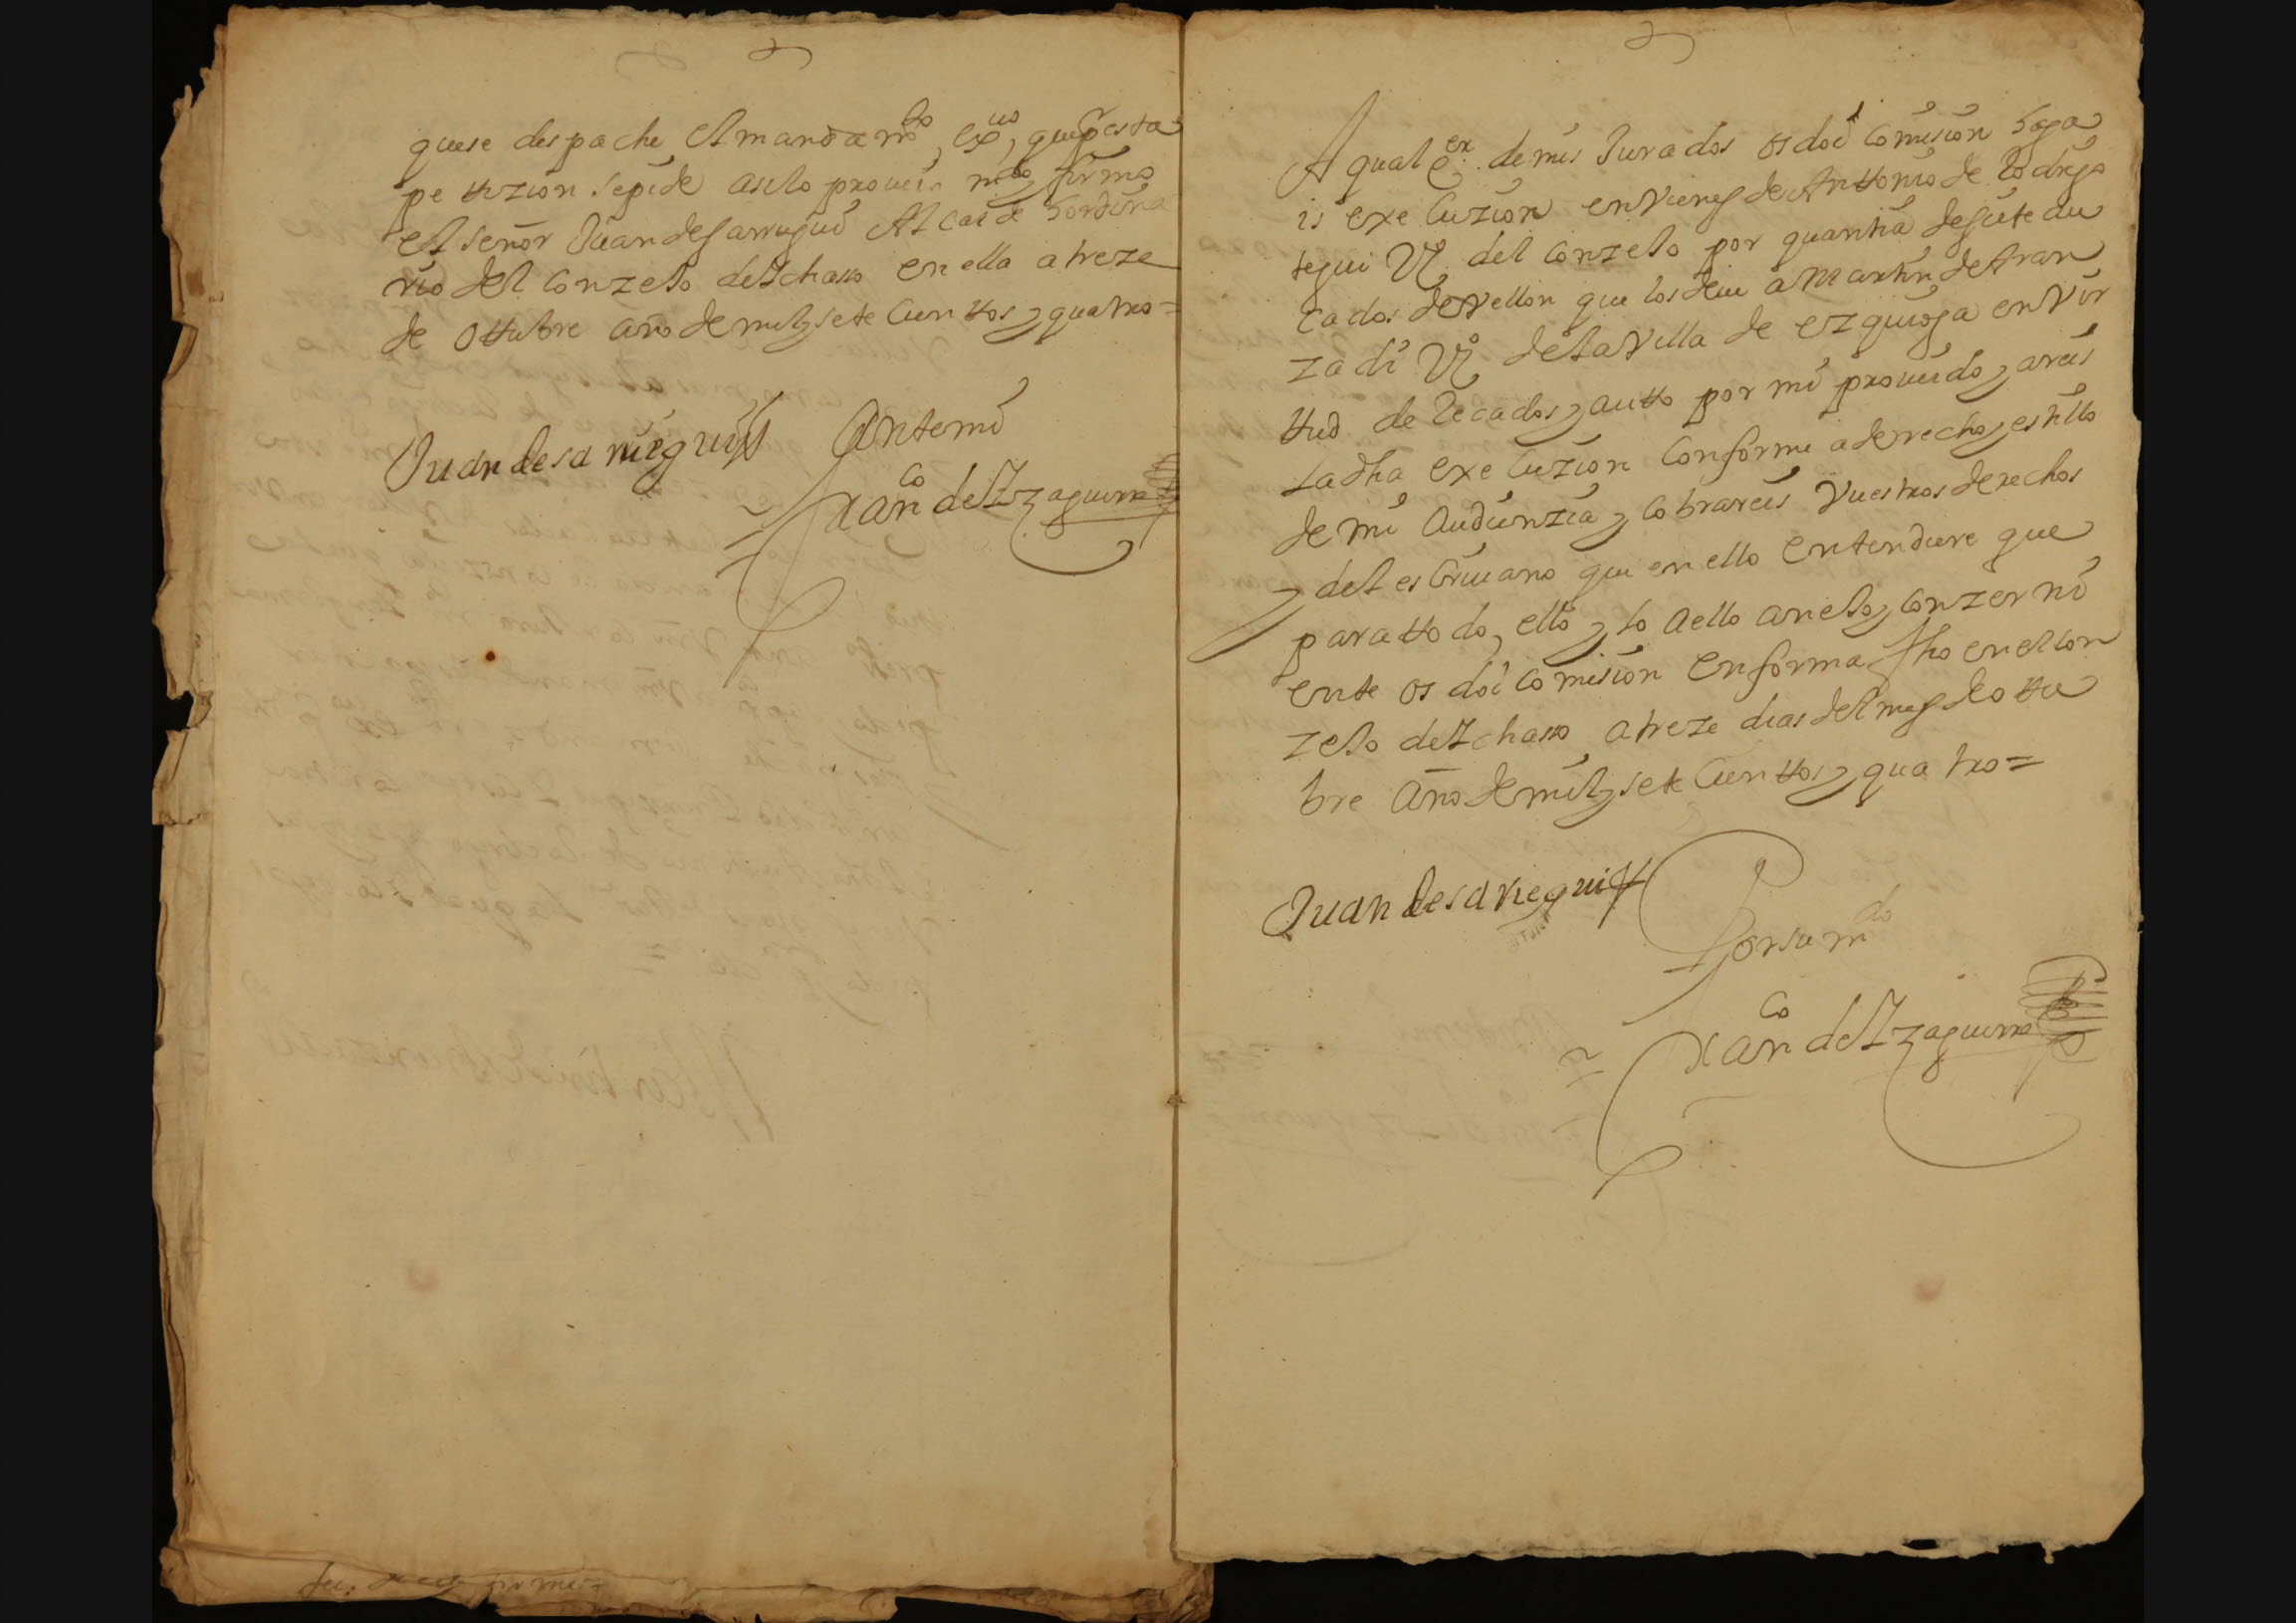 quese despache el mandamto, exuo, que p esta
petizion se pide asi lo proueio mdo y firmo
el señor Juan de Sarrugui Alcalde hordina
rio del Conzejo de Ichasso en ella a treze
de ottubre año de mil y setecienttos y quatro =
Juan de sarriegui Ante mi
xan co de Yzaguirre
A qualqer de mis Jurados os doi Comision haga
is exeCuzion en Vienes de Anttonio de Lodrigo
tegui Vo del Conzejo por quantia de siete du
Cados de Vellon que los deue a Martin de Aran
zadi Vo de la Villa de ezquioga en Vir
ttud de recados y autto por mi proueido y areis
la dha exeCuzion Conforme a derecho y estillo
de mi Audienzia y Cobrareis Vuestros derechos
y del esCriuano que en ello entendiere que
para ttodo ello y lo a ello anejo y Conzerni
ente os doi Comision en forma fho en el Con
zejo de Ichasso a treze dias del mes de ottu
bre Año de mil y setecienttos y quatro =
Juan de sariegui
Por su mdo
xan co de Yzaguirre
firme =